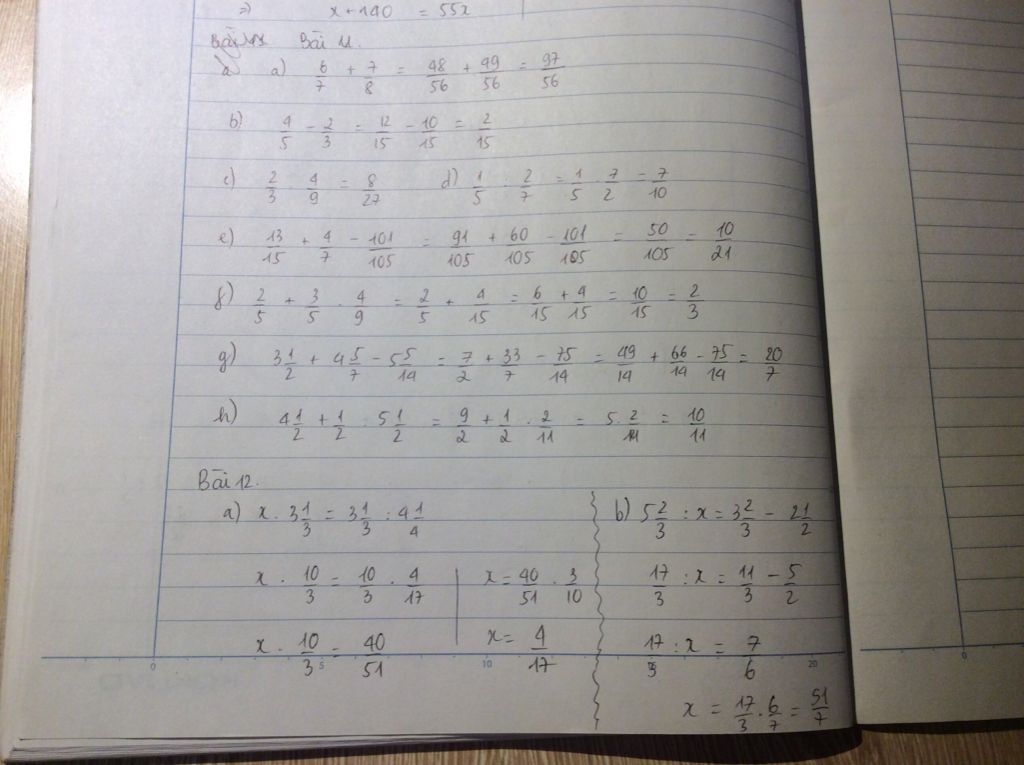 => x + 140 = 55x
Bài 11.
a) 6/7 + 7/8 = 48/56 + 49/56 = 97/56
b) 4/5 - 2/3 = 12/15 - 10/15 = 2/15
c) 2/3 . 4/9 = 8/27 d) 1/5 : 2/7 = 1/5 . 7/2 = 7/10
e) 13/15 + 4/7 - 101/105 = 91/105 + 60/105 - 101/105 = 50/105 = 10/21
f) 2/5 + 3/5 . 4/9 = 2/5 + 4/15 = 6/15 + 4/15 = 10/15 = 2/3
g) 3 1/2 + 4 5/7 - 5 5/14 = 7/2 + 33/7 - 75/14 = 49/14 + 66/14 - 75/14 = 20/7
h) 4 1/2 + 1/2 : 5 1/2 = 9/2 + 1/2 . 2/11 = 5 . 2/11 = 10/11
Bài 12.
a) x . 3 1/3 = 3 1/3 : 4 1/4
x . 10/3 = 10/3 . 4/17
x . 10/3 = 40/51
x = 40/51 . 3/10
x = 4/17
b) 5 2/3 : x = 3 2/3 - 2 1/2
17/3 : x = 11/3 - 5/2
17/3 : x = 7/6
x = 17/3 . 6/7 = 51/7
0 5 10 20
0